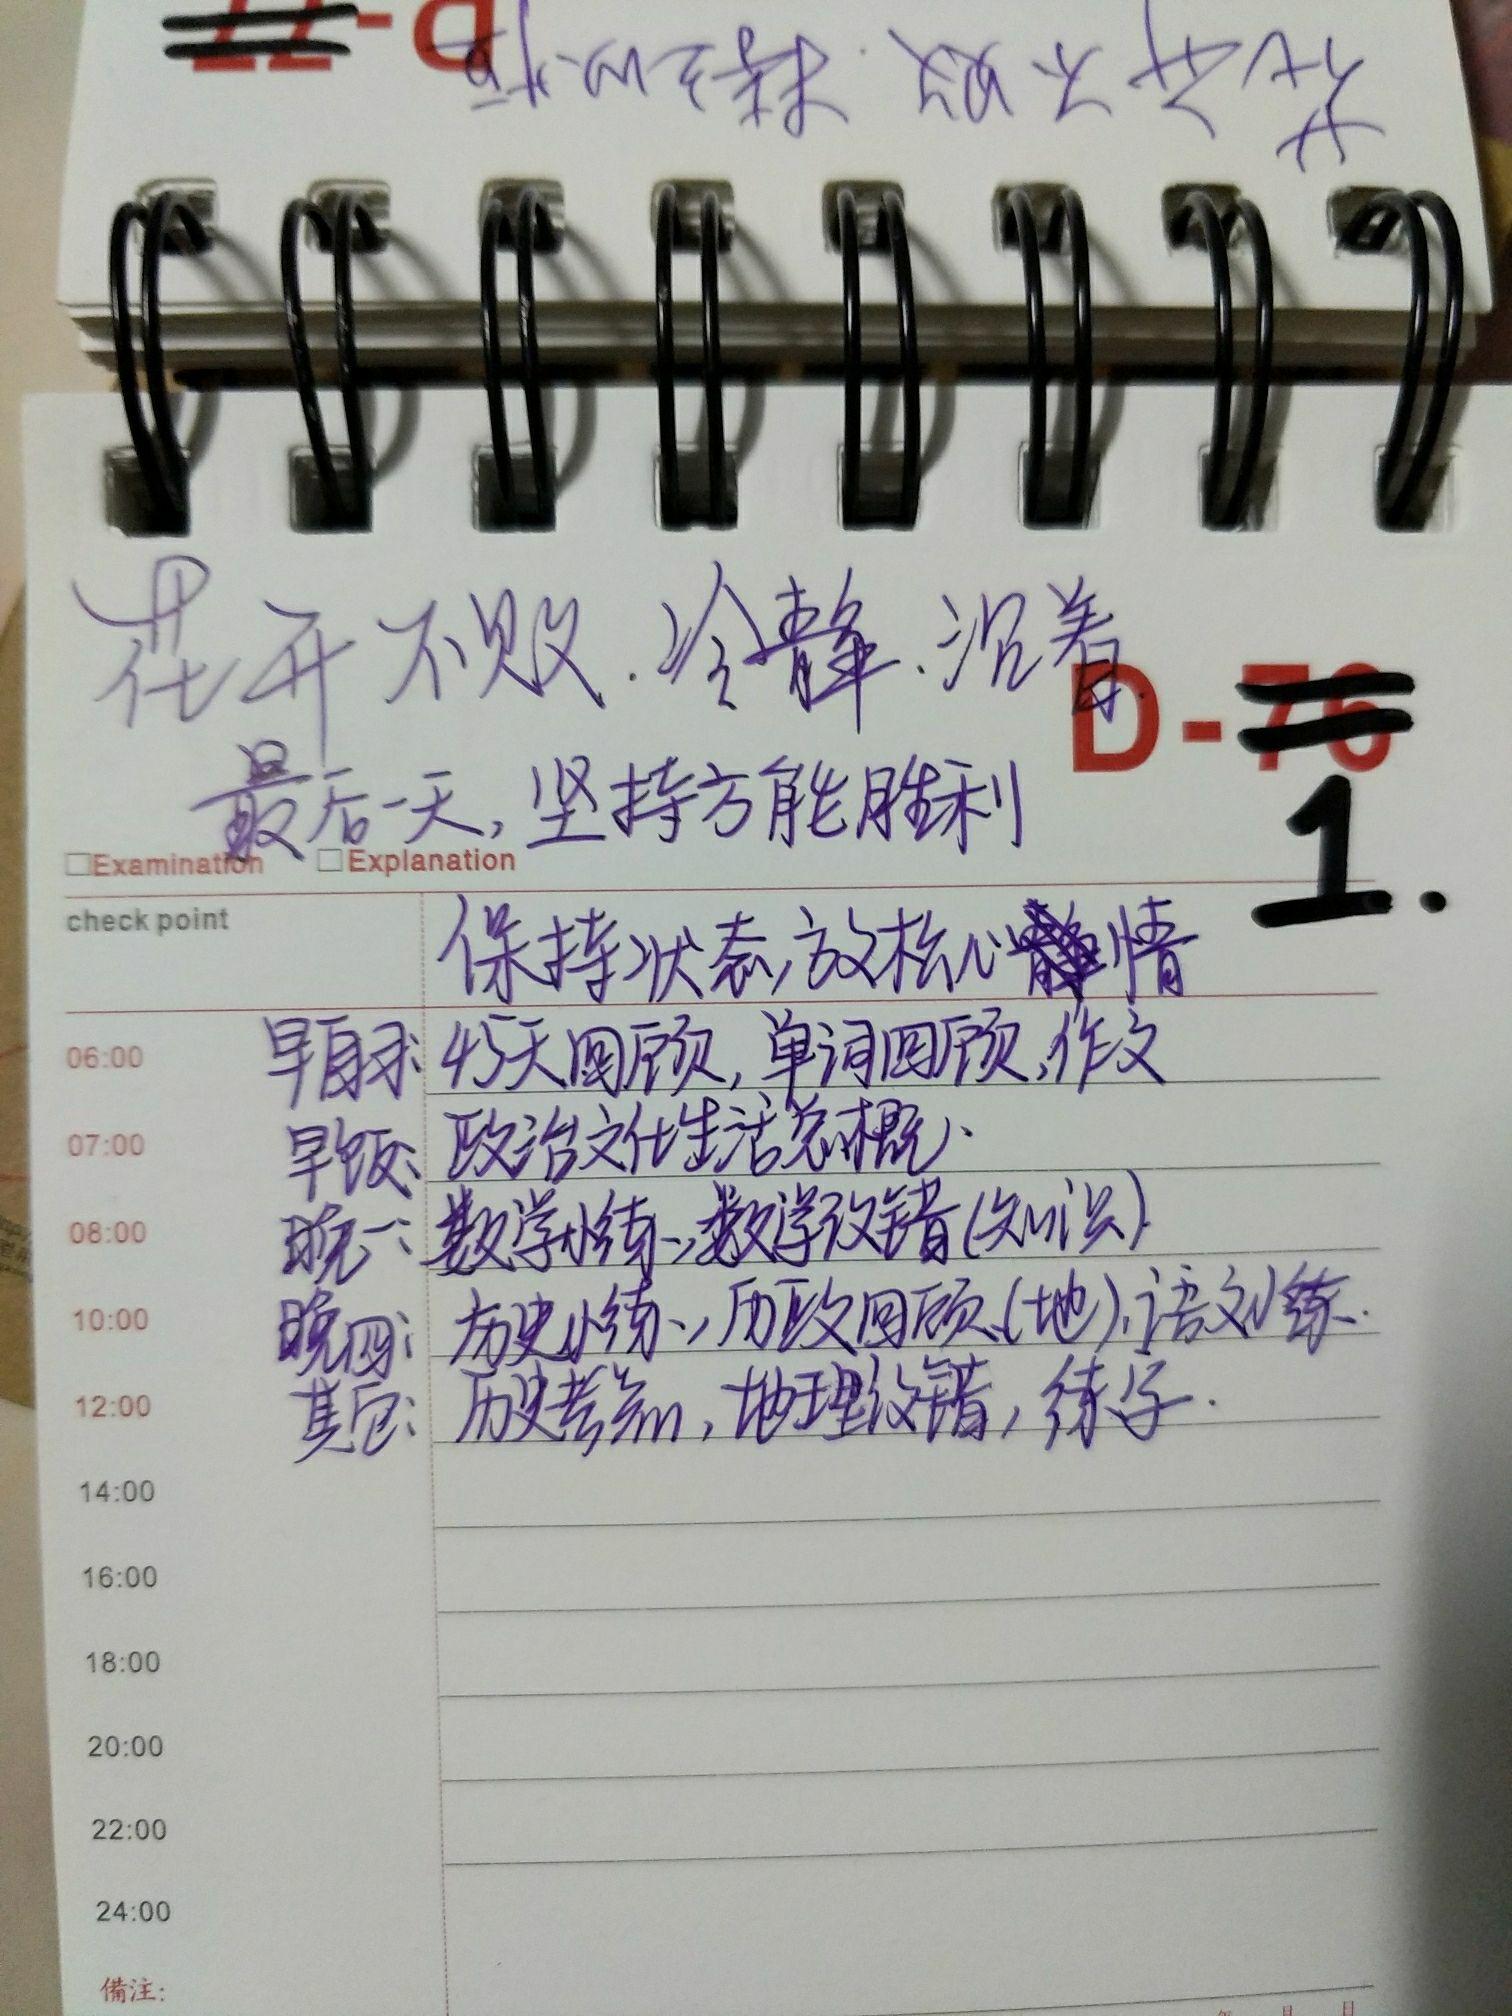 D-77
花开不败.持之以恒
花开不败.冷静.沉着.
D-76
最后一天,坚持方能胜利
1.
□Examination □Explanation
check point
保持状态,放松心情
06:00 早自习: 45天回顾,单词回顾,作文
07:00 早饭: 政治文化生活总概.
08:00 晚一: 数学小练一,数学改错(知识)
10:00 晚四: 历史小练一,历政回顾(地),语文小练.
12:00 其它: 历史考点,地理改错,练字.
14:00
16:00
18:00
20:00
22:00
24:00
備注:
年 月 日